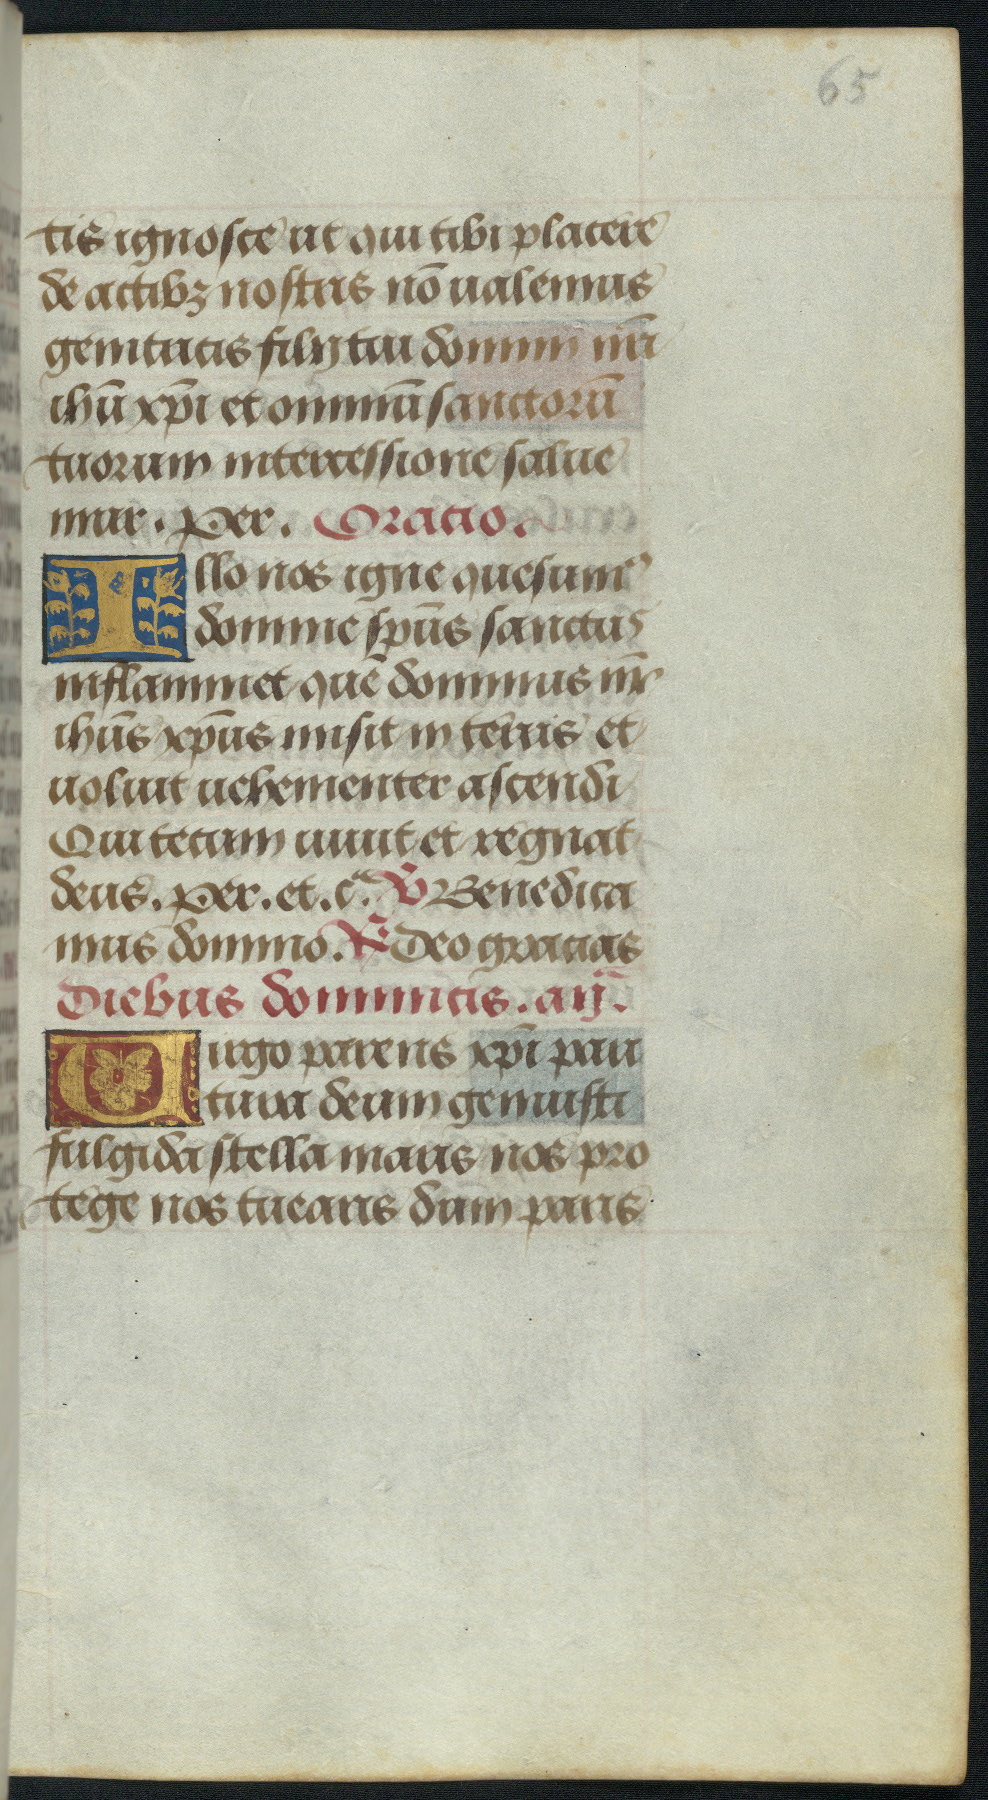 65
tis ignosce ut qui tibi placere
de actibꝫ nostris nō ualemus
genitricis filij tui domini nr̄i
ihū xp̄i et omniū sanctorū
tuorum intercessione salue
mur. Per. Oracio.
Illo nos igne quesumꝰ
domine sp̄us sanctus
inflammet quē dominus nr̄
ihūs xp̄us misit in terris et
uoluit vehementer ascendi
Qui tecum uiuit et regnat
deus. Per. et. cᵃ. ℣ Benedica
mus domino. ℟ Deo gracias
Diebus dominicis. añ.
Uirgo parens xp̄i pari
tura deum genuisti
fulgida stella maris nos pro
tege nos tuearis dum paris